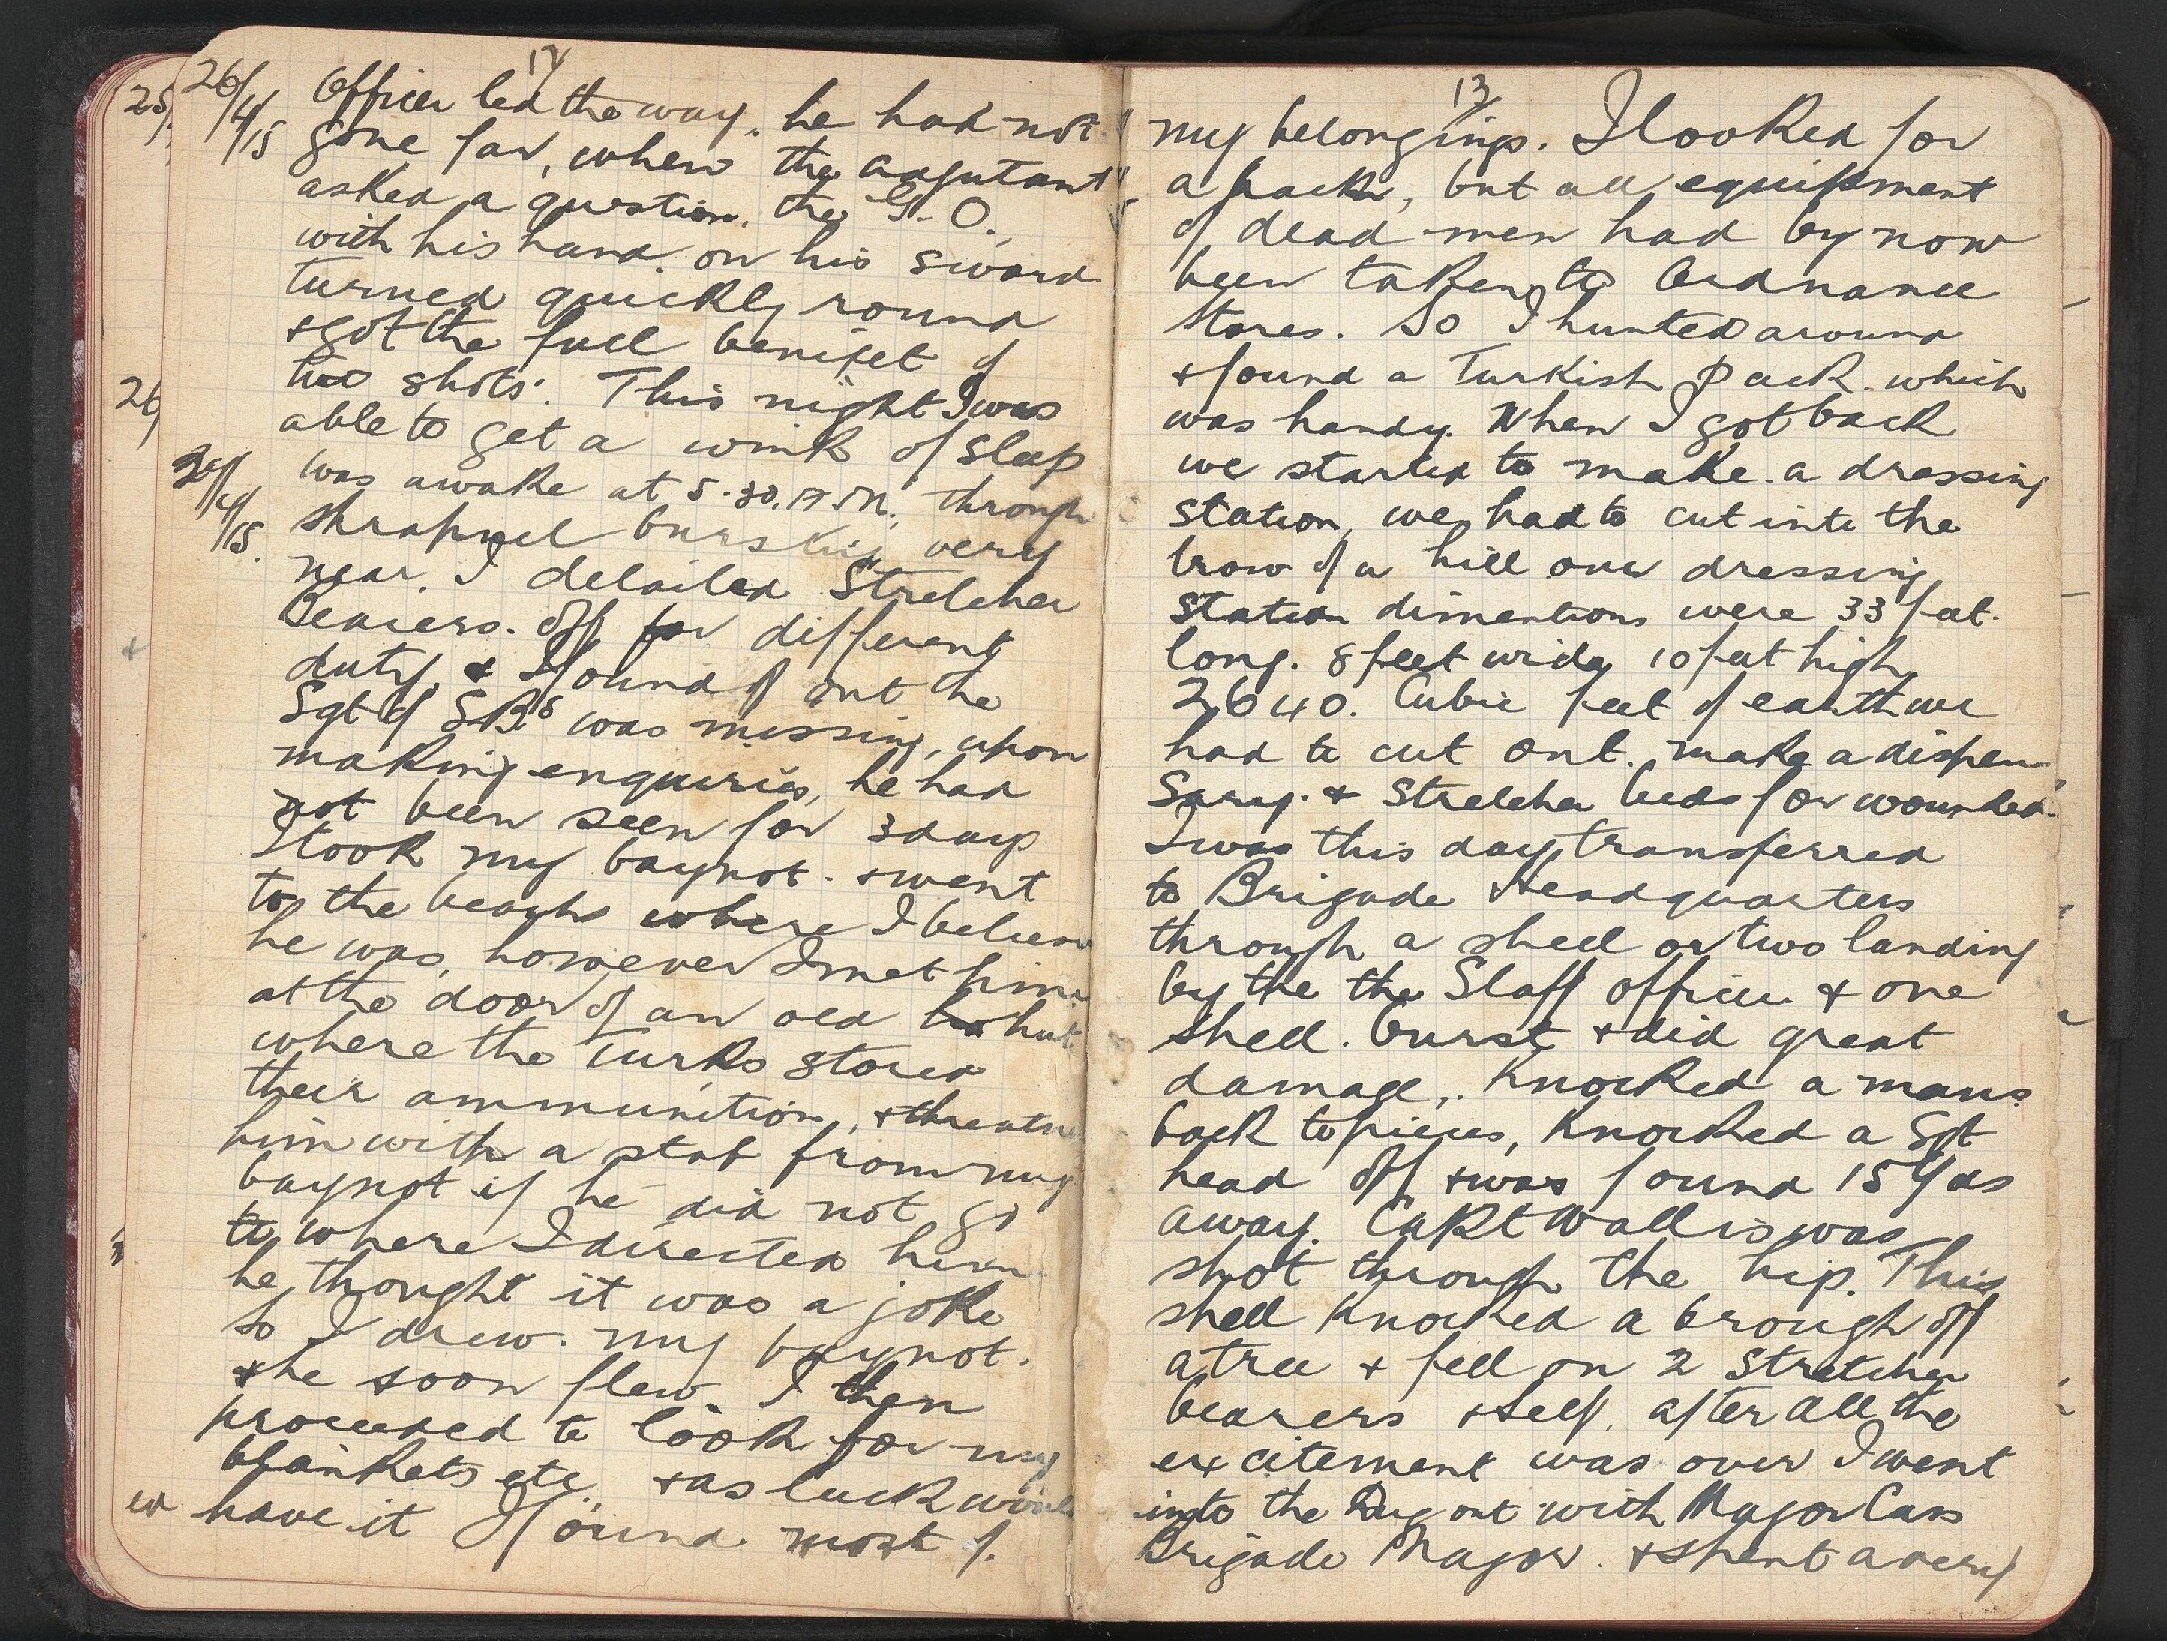 12
26/4/15 Officer led the way. he had not
gone far, when the adjutant
asked a question. the G.O.,
with his hand on his sword
turned quickly round
+ got the full benifet of
two shots. This night I was
able to get a wink of sleep
was awake at 5.30. A.M. through
/4/15. shrapnel bursting very
near. I detailed Stretcher
Bearers. off for different
duty, + I found out the
Sgt of S.Bs was missing, upon
making enquiries, he had
not been seen for 3 days
I took my baynot. + went
to the beach where I believe
he was, however I met him
at the door of an old hut
where the Turks stored
their ammunition, + threatn
him with a stab from my
baynot if he did not go
to where I directed him
he thought it was a joke
so I drew. my baynot.
+ he soon flew. I then
proceeded to look for my
blankets etc, + as luck would
have it I found most of.
13
my belongings. I looked for
a pack, but all equipment
of dead men had by now
been taken to Ordnance
Stores. So I hunted around
+ found a Turkish Pack. which
was handy. When I got back
we started to make. a dressing
station, we had to cut into the
brow of a hill our dressing
station dimentions were 33 feet.
long. 8 feet wide, 10 feet high,
2640. Cubic feet of earth we
had to cut out. make a dispen
Sary. + Stretcher beds for wounded.
I was this day transferred
to Brigade Headquarters
through a shell or two landing
by the the Staff officer + one
shell. burst + did great
damage,. Knocked a mans
back to pieces, Knocked a Sgt
head off + was found 15 Yds
away. Capt Wallis was
shot through the hip. This
shell Knocked a brough off
a tree + fell on 2 Stretcher
bearers + self. after all the
excitement was over I went
into the Dug out with Major Cass
Brigade Major. + spent a very